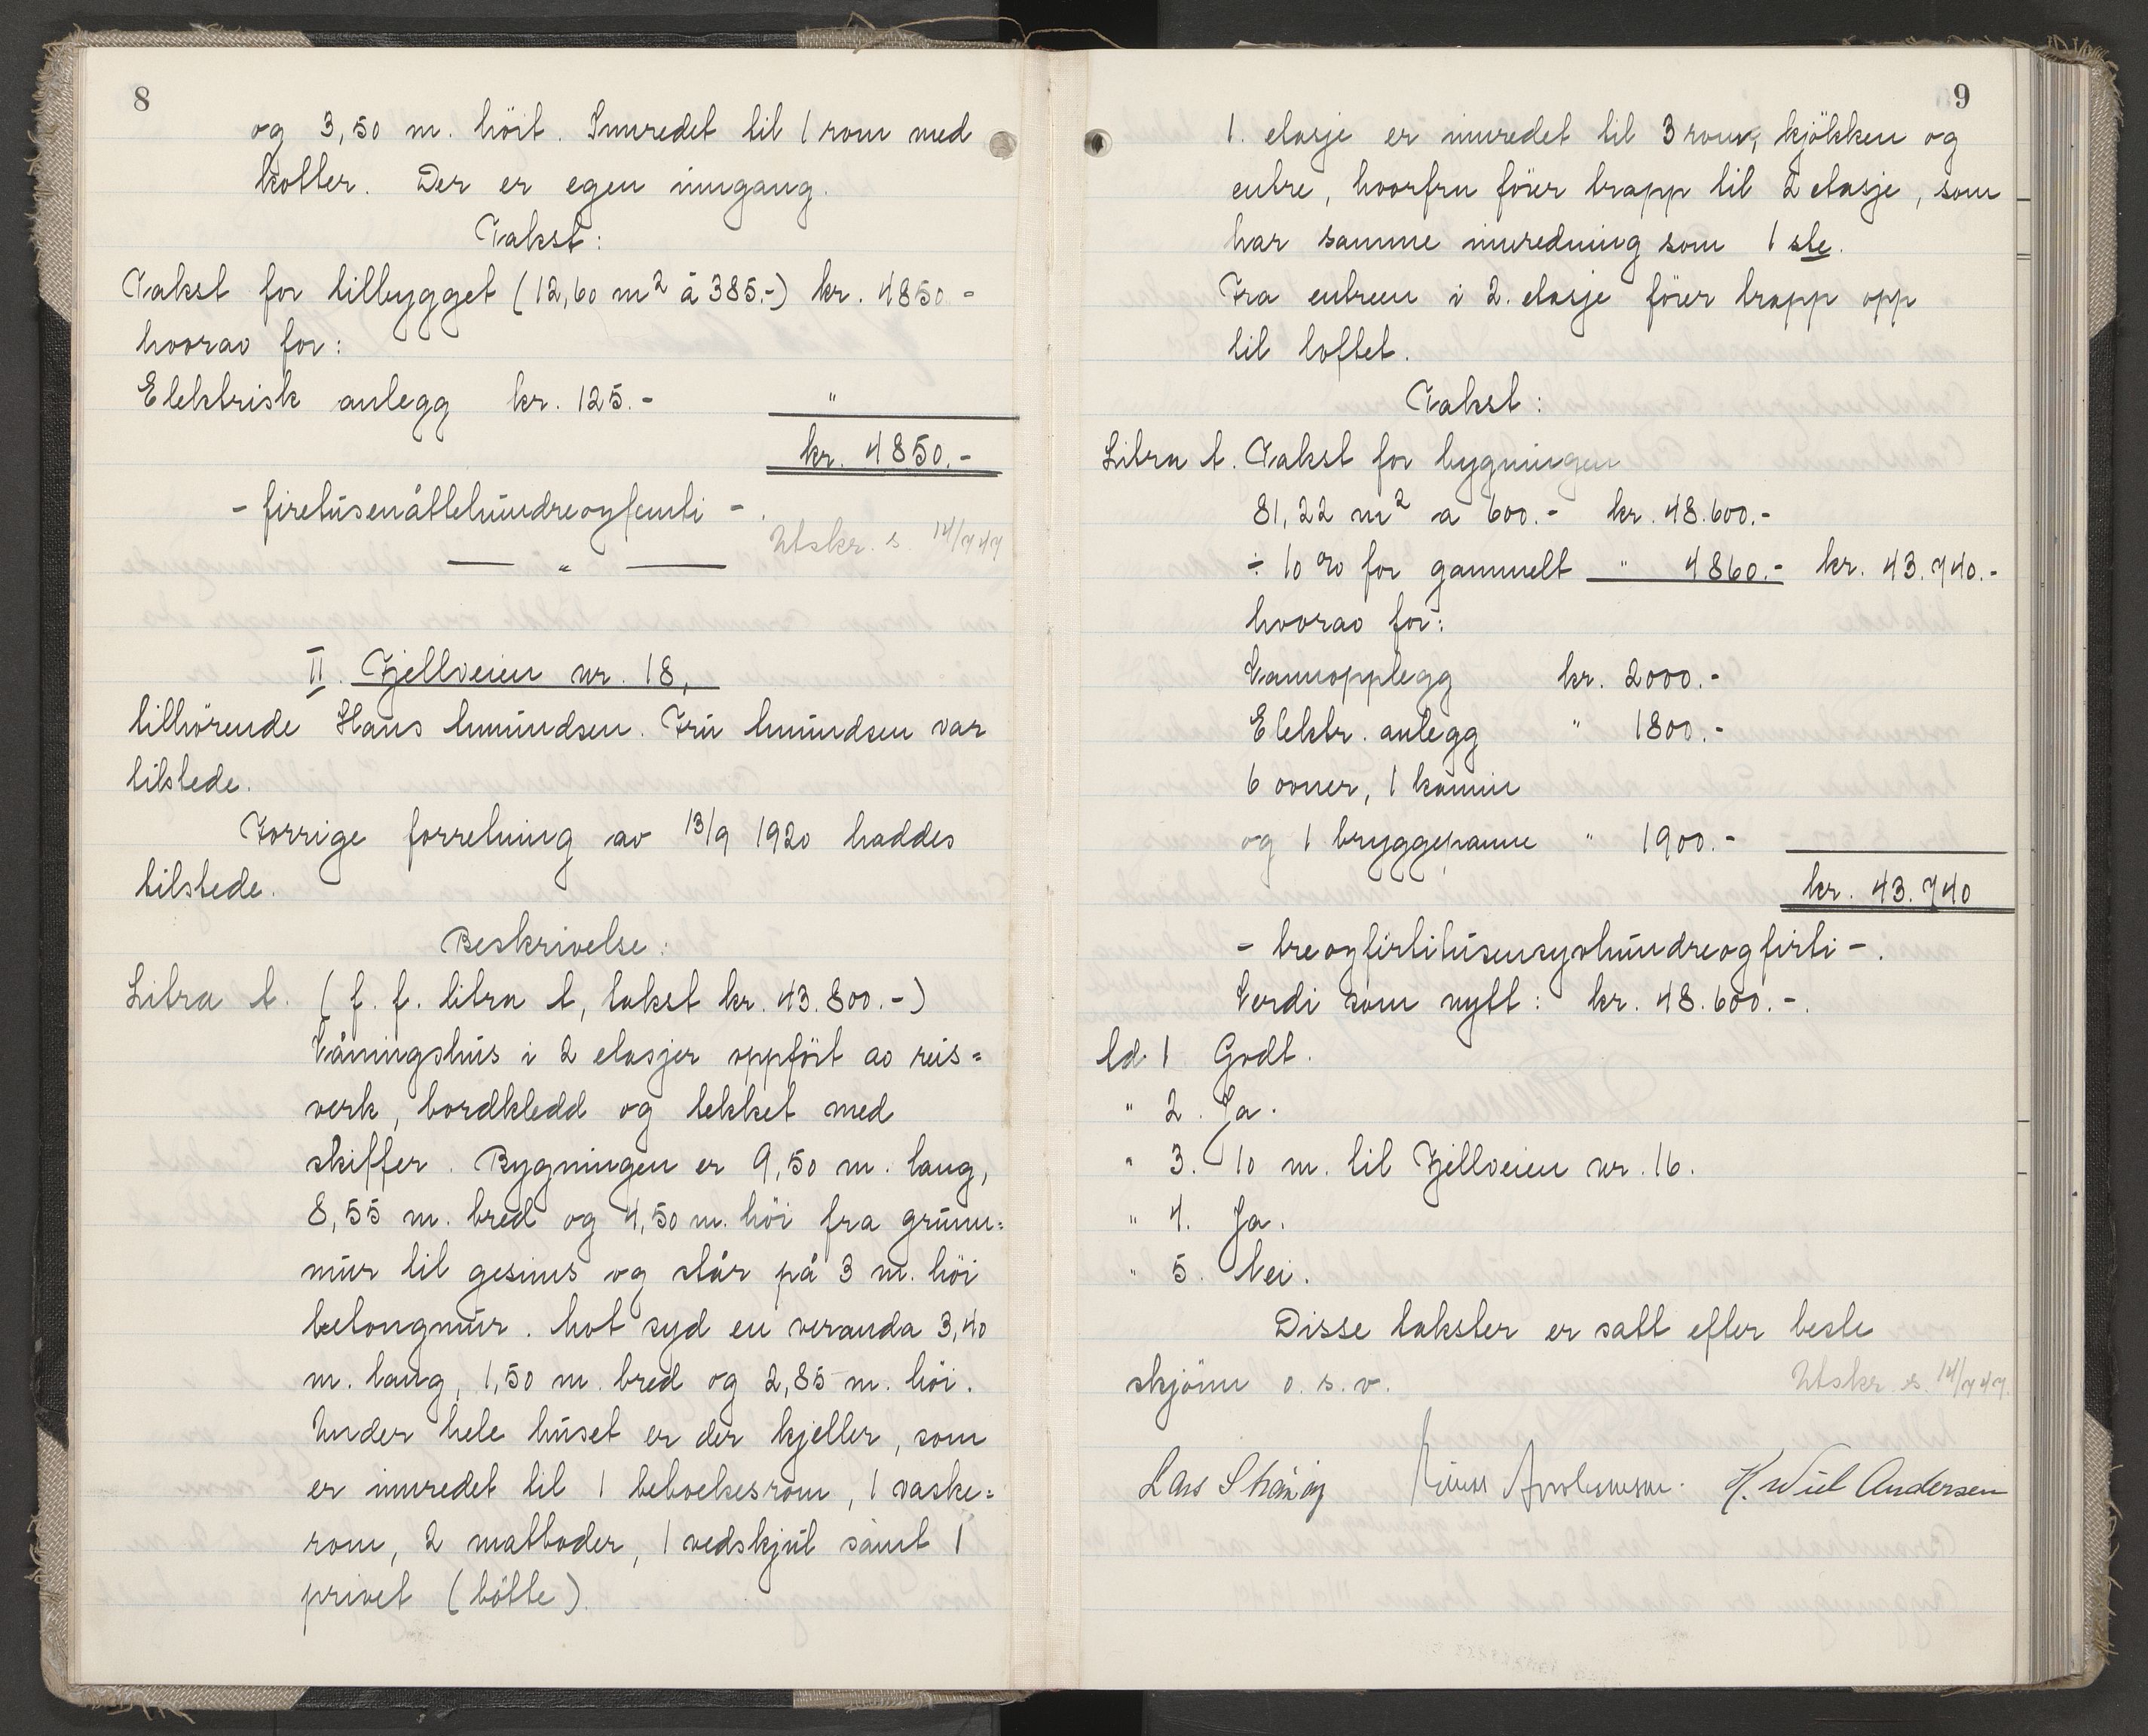 8
og 3,50 m. höit. Innredet til 1 rom med
kotter. Der er egen inngang.
Takst:
Takst for tilbygget (12,60 m² à 385.-) kr. 4850.-
hvorav for:
Elektrisk anlegg kr. 125.- "
kr. 4850.-
- firetusenåttehundreogfemti -.
Utskr. s. 14/7 47
— " —
II. Fjellveien nr. 18,
tilhörende Hans Amundsen. Fru Amundsen var
tilstede.
Forrige forretning av 13/9 1920 haddes
tilstede.
Beskrivelse:
Litra A. (f. f. litra A, takst kr. 43.800.-)
Våningshus i 2 etasjer oppfört av reis=
verk, bordkledd og tekket med
skiffer. Bygningen er 9,50 m. lang,
8,55 m. bred og 4,50 m. höi fra grunn=
mur til gesims og står på 3 m. höi
betongmur. Mot syd en veranda 3,40
m. lang, 1,50 m. bred og 2,85 m. höi.
Under hele huset er der kjeller, som
er innredet til 1 beboelsesrom, 1 vaske=
rom, 2 matboder, 1 vedskjul samt 1
privet (bötte).
9
1. etasje er innredet til 3 rom, kjökken og
entre, hvorfra förer trapp til 2 etasje, som
har samme innredning som 1 ste.
Fra entreen i 2. etasje förer trapp opp
til loftet.
Takst:
Litra A. Takst for bygningen
81,22 m² a 600.- kr. 48.600.-
÷ 10 % for gammelt " 4860.- kr. 43.740.-
hvorav for:
Vannopplegg kr. 2000.-
Elektr. anlegg " 1800.-
6 ovner, 1 kamin
og 1 bryggepanne " 1900.-
kr. 43.740
- treogförtitusensyvhundreogförti -.
Verdi som nytt: kr. 48.600.-.
Ad. 1 Godt.
" 2. Ja.
" 3. 10 m. til Fjellveien nr. 16.
" 4. Ja.
" 5. Nei.
Disse takster er satt efter beste
skjönn o. s. v.
Utskr. s. 14/7 47.
Lars H. Wiel Andersen